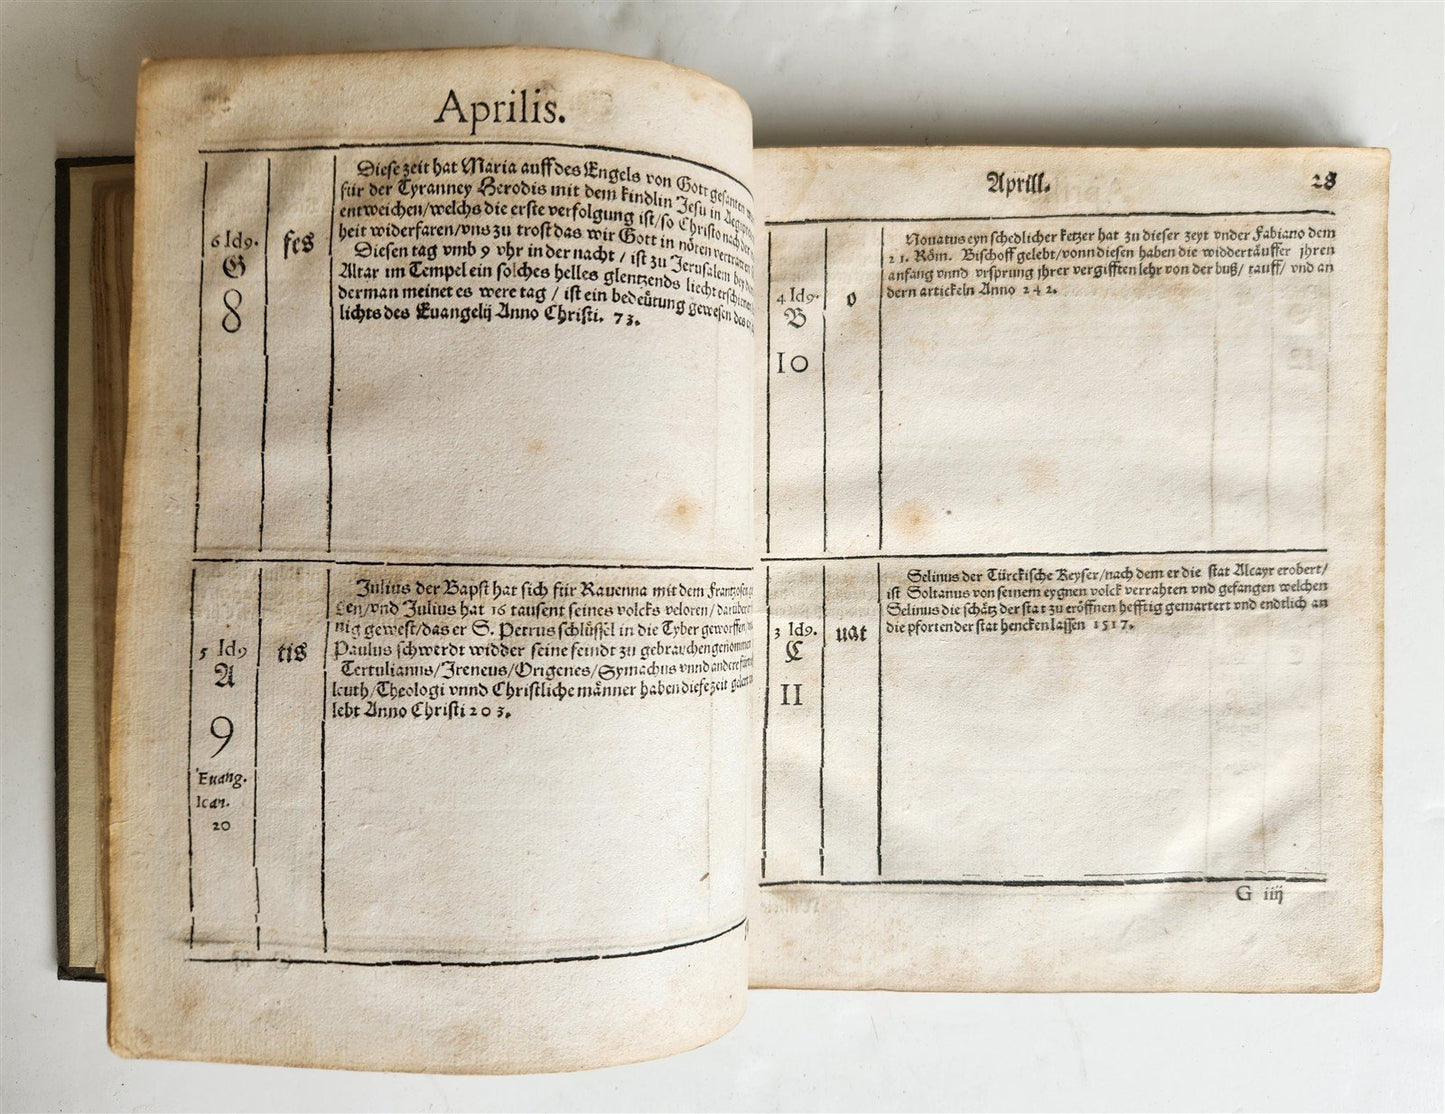 Aprilis.
6 Idꝰ.
G
8
fes
Diese zeit hat Maria auff des Engels von Gott gesanten
für der Tyranney Herodis mit dem kindlin Jesu in
entweichen/welchs die erste verfolgung ist/so Christo nach der
heit widerfaren/vns zu trost das wir Gott in nöten vertrawen
Diesen tag vmb 9 vhr in der nacht / ist zu Jerusalem bey dem
Altar im Tempel ein solches helles glentzends liecht erschienen
derman meinet es were tag / ist ein bedeütung gewesen des
lichts des Euangelij Anno Christi. 73.
5 Idꝰ
A
9
Euang.
Ican.
20
tis
Julius der Bapst hat sich für Rauenna mit dem Frantzosen
/vnd Julius hat 16 tausent seines volcks veloren/
nig gewest/das er S. Petrus schlüssel in die Tyber geworffen
Paulus schwerdt widder seine feindt zu gebrauchen genommen
Tertulianus/Ireneus/Origenes/Symachus vnnd andere
leuth/Theologi vnnd Christliche männer haben diese zeit
lebt Anno Christi 203.
Aprill.
28
4 Idꝰ.
B
10
o
Nouatus eyn schedlicher ketzer hat zu dieser zeyt vnder Fabiano dem
21. Röm. Bischoff gelebt/vonn diesen haben die widdertäuffer jhren
anfang vnnd vrsprung jhrer vergifften lehr von der buß/ tauff/ vnd an
dern artickeln Anno 242.
3 Idꝰ.
C
11
uat
Selinus der Türckische Keyser/nach dem er die stat Alcayr erobert/
ist Soltanus von seinem eygnen volck verrahten vnd gefangen welchen
Selinus die schätz der stat zu eröffnen hefftig gemartert vnd endtlich an
die pforten der stat hencken lassen 1517.
G iiij